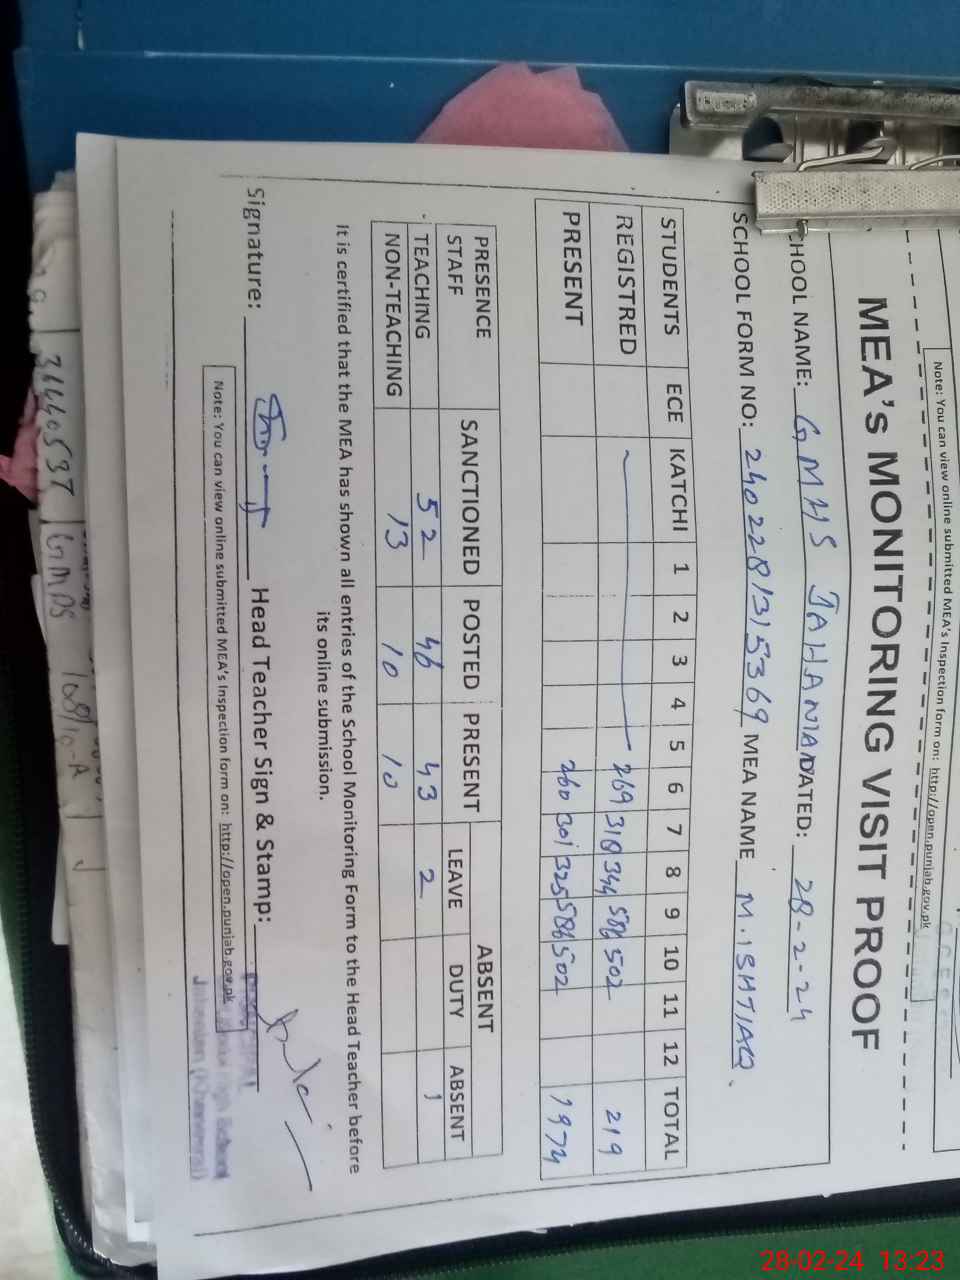 Note: You can view online submitted MEA's Inspection form on: http://open.punjab.gov.pk
MEA's MONITORING VISIT PROOF
CHOOL NAME: GMHS JAHANIA DATED: 28-2-24
SCHOOL FORM NO: 2402281315369 MEA NAME M. ISHTIAQ.
STUDENTS ECE KATCHI 1 2 3 4 5 6 7 8 9 10 11 12 TOTAL
REGISTRED 269 318 344 586 502 219
PRESENT 260 301 325 586 502 1974
PRESENCE SANCTIONED POSTED PRESENT ABSENT
STAFF LEAVE DUTY ABSENT
TEACHING 52 46 43 2 1
NON-TEACHING 13 10 10
It is certified that the MEA has shown all entries of the School Monitoring Form to the Head Teacher before
its online submission.
Signature: Head Teacher Sign & Stamp:
PRINCIPAL
High School
Jahanian (Khanewal)
Note: You can view online submitted MEA's Inspection form on: http://open.punjab.gov.pk
36440537 GMPS 108/10-A
28-02-24 13:23